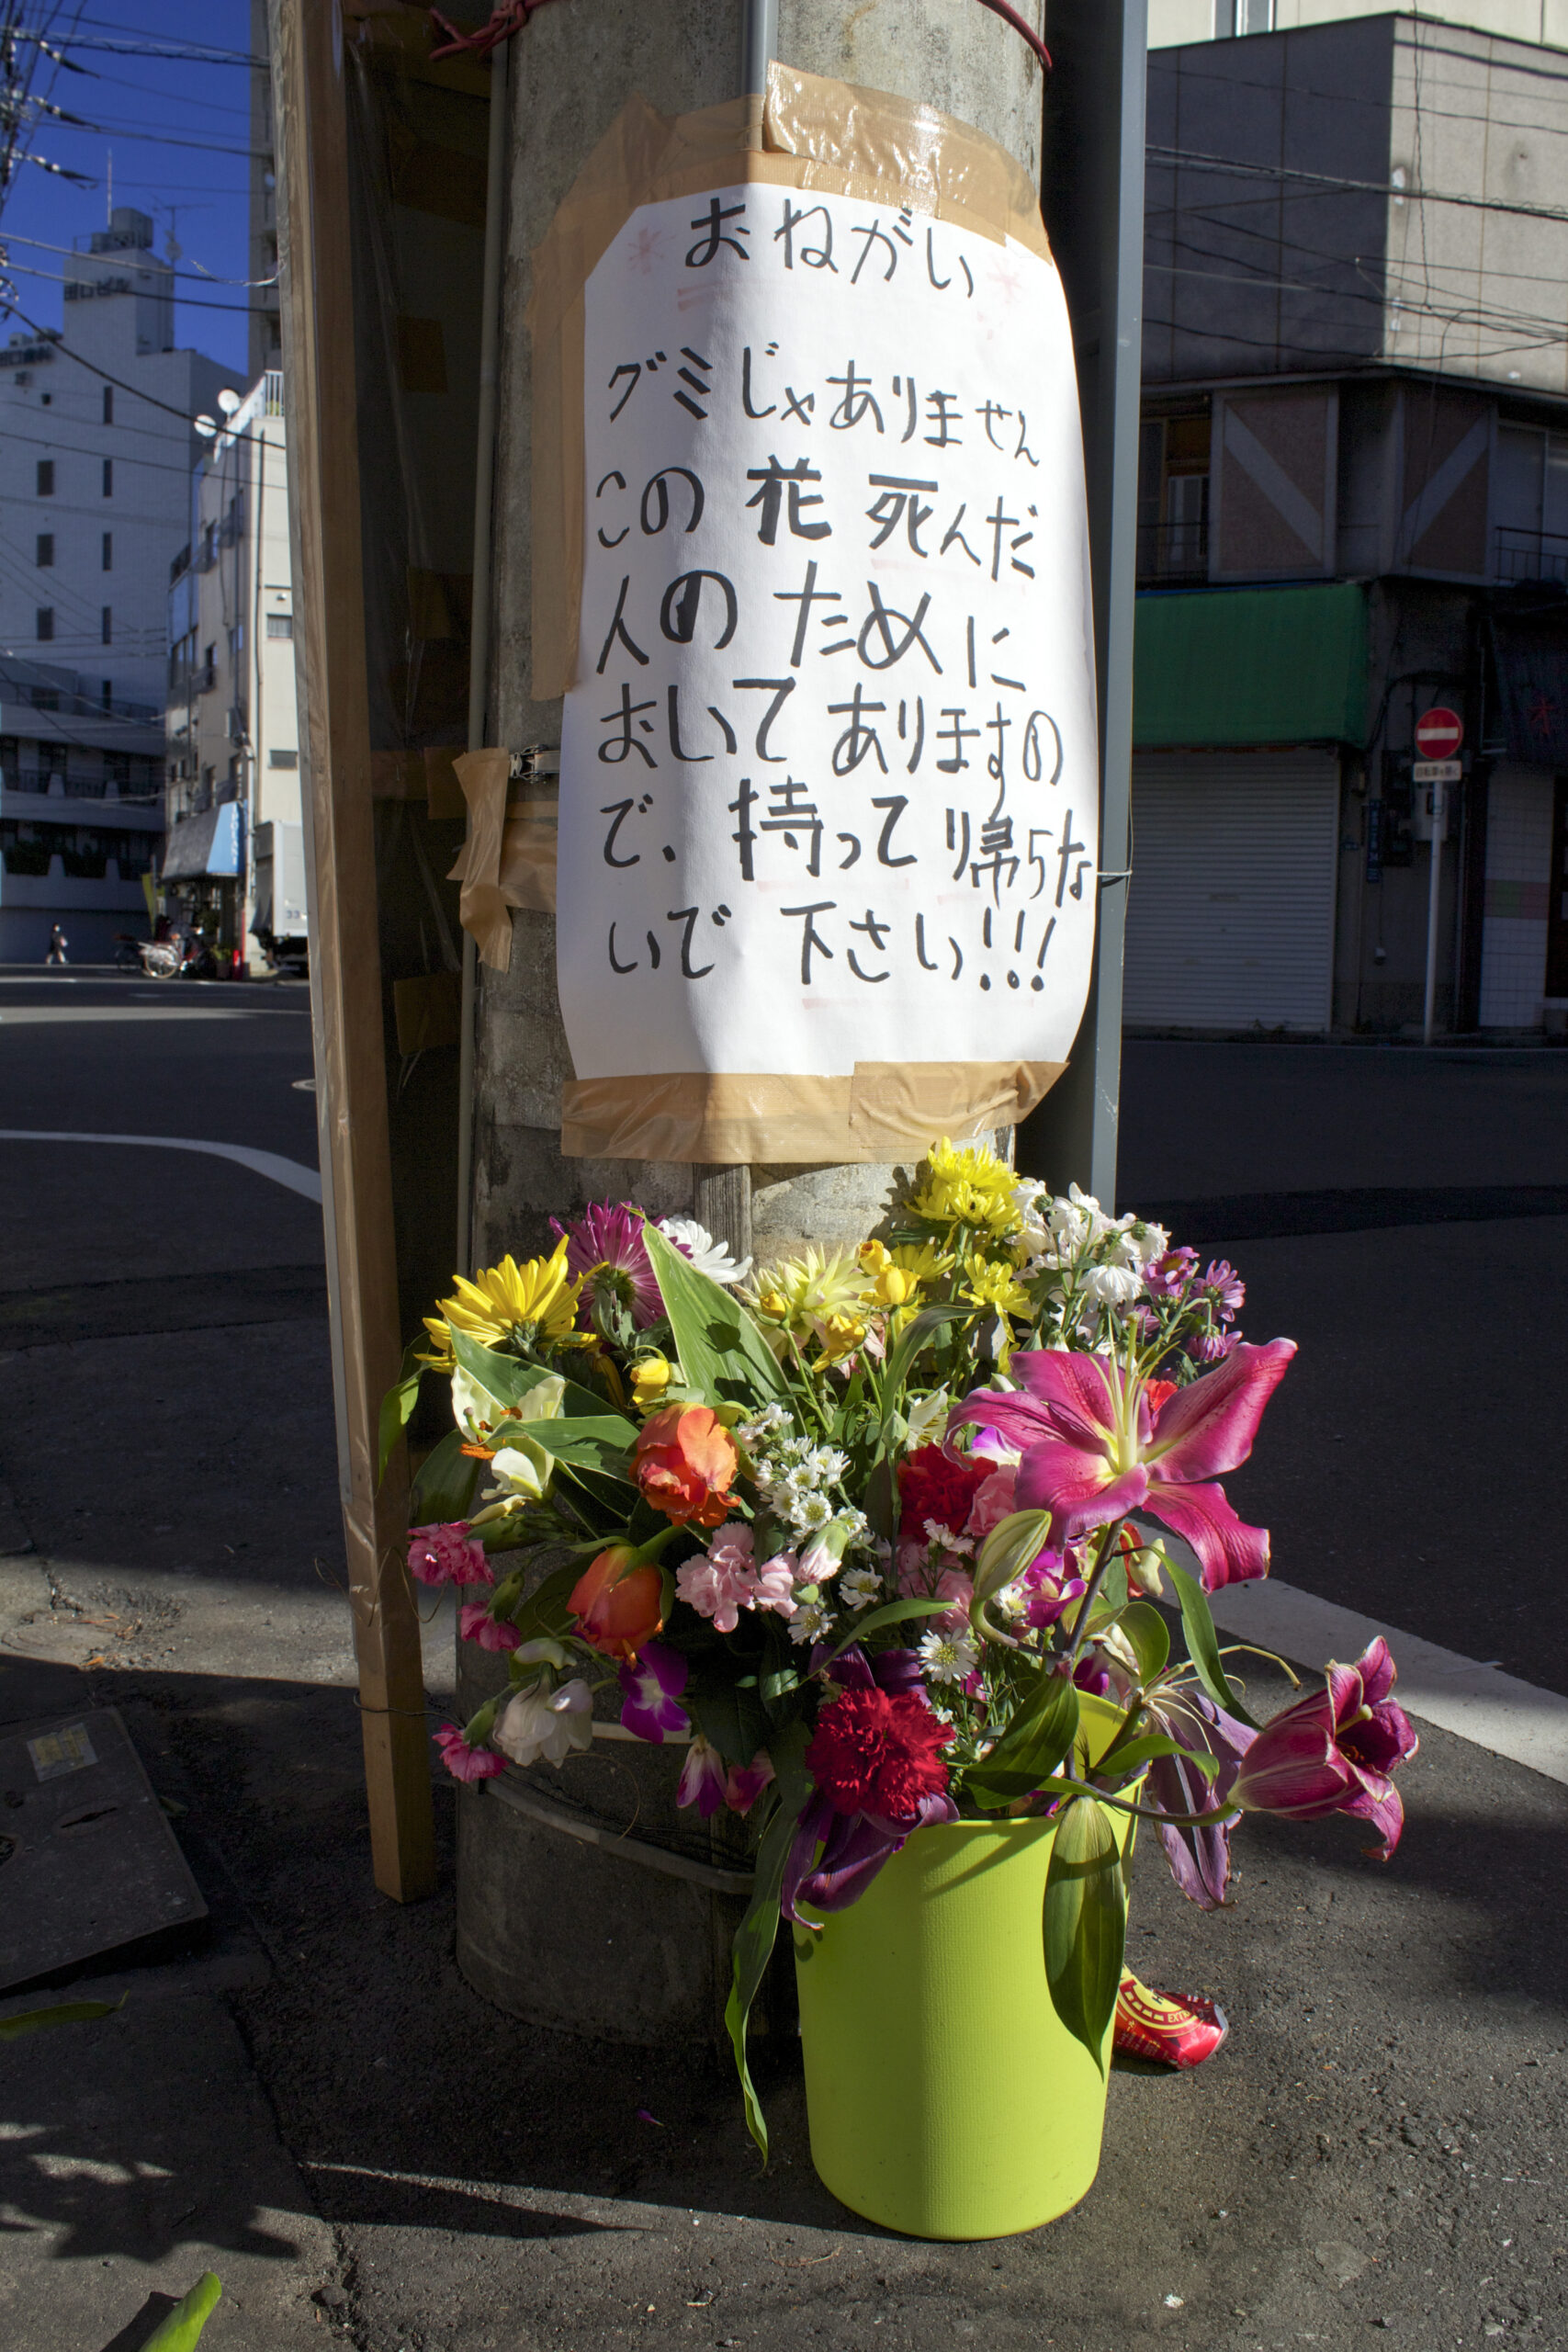 おねがい
グミじゃありません
この花 死んだ
人の ために
おいて ありますの
で、持って帰らな
いで 下さい!!!